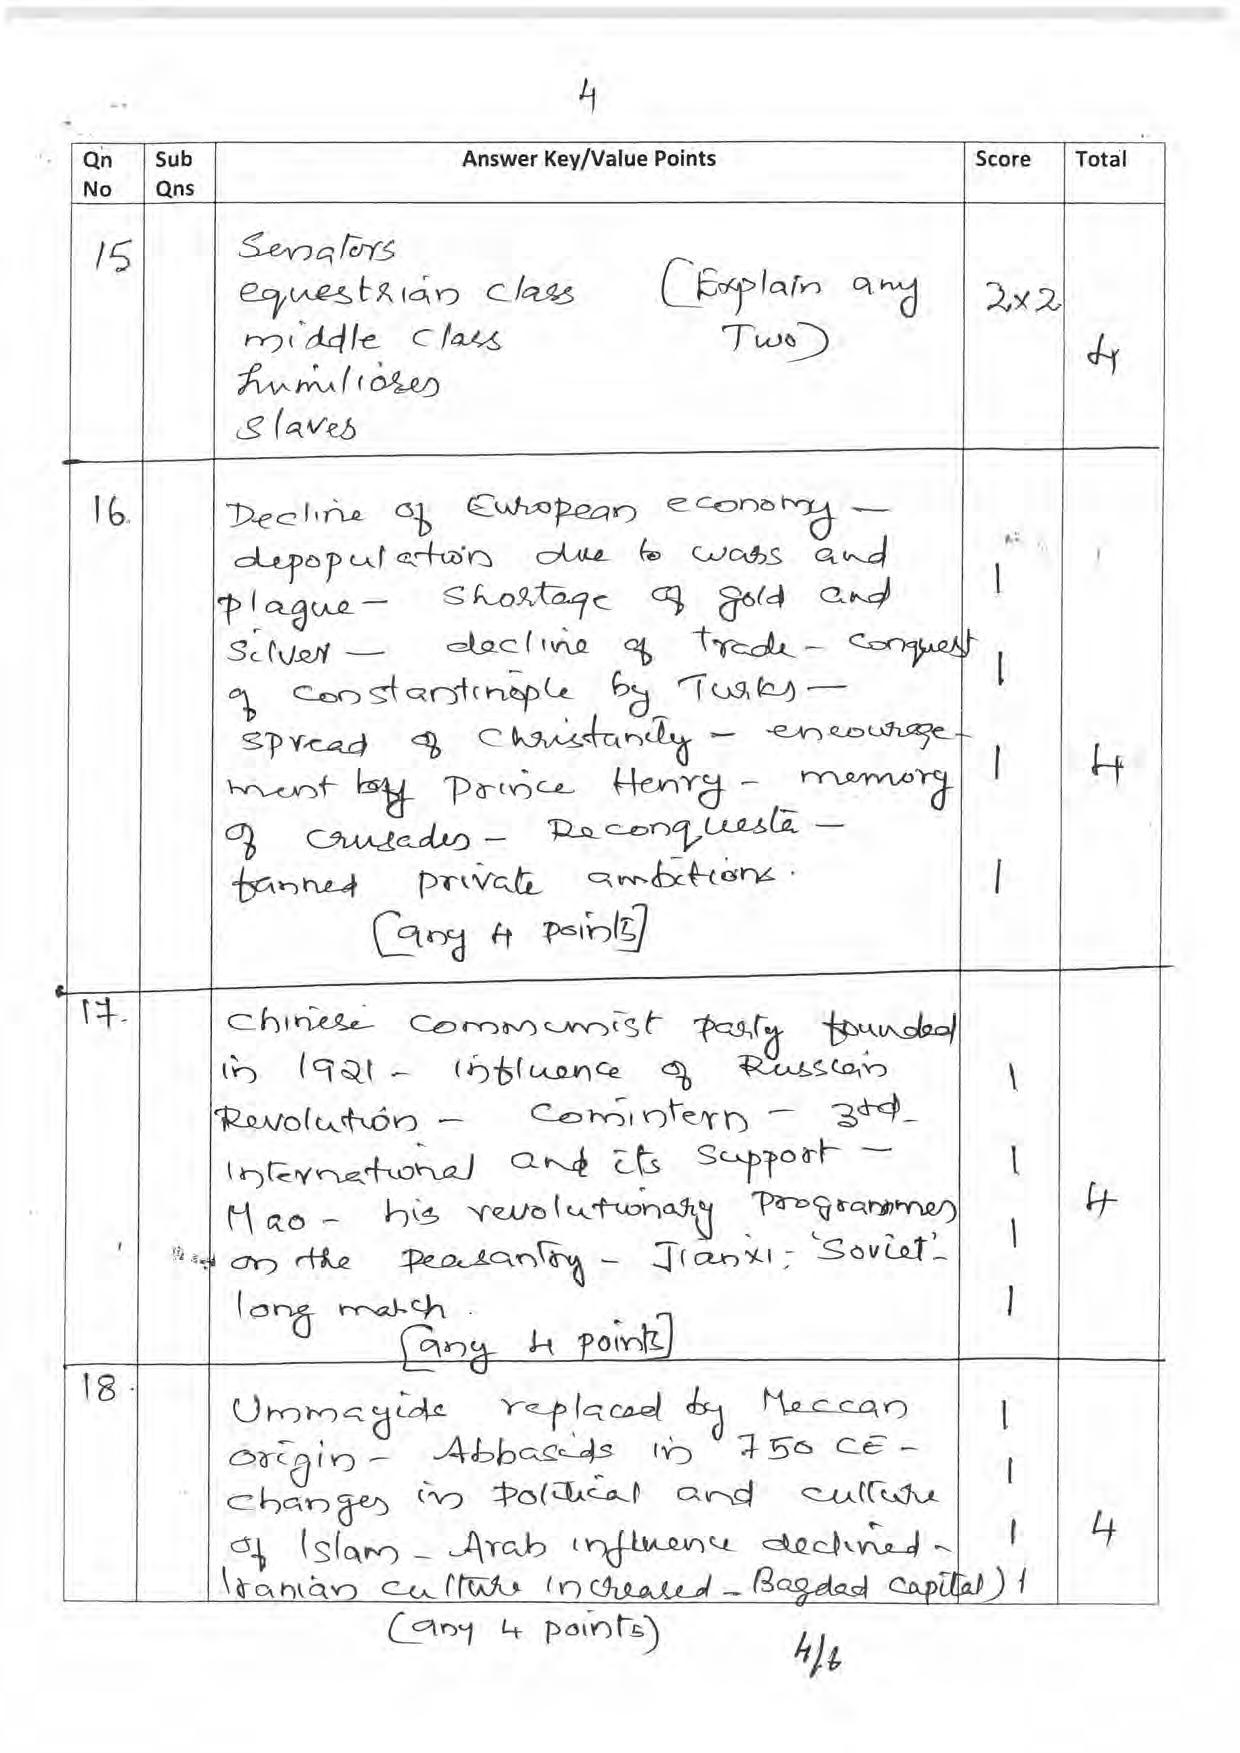 4
Qn No | Sub Qns | Answer Key/Value Points | Score | Total
15
Senators
equestrian class (Explain any 2x2
middle class Two) 4
humiliores
slaves
16.
Decline of European economy —
depopulation due to wars and
plague — shortage of gold and 1
Silver — decline of trade — conquest 1
of constantinople by Turks —
spread of christanity — encourage-
ment by Prince Henry — memory 1 4
of crusades — Reconquesta —
fanned private ambitions. 1
[any 4 points]
17.
Chinese communist party founded
in 1921 — influence of Russian 1
Revolution — Comintern — 3rd
International and its support — 1
Mao — his revolutionary programmes 1 4
on the peasantry — Jianxi; 'Soviet' —
long march. 1
[any 4 points]
18.
Ummayids replaced by Meccan 1
origin — Abbasids in 750 CE —
changes in political and culture 1
of Islam — Arab influence declined — 1 4
Iranian culture increased — Bagdad capital) 1
(any 4 points)
4/6